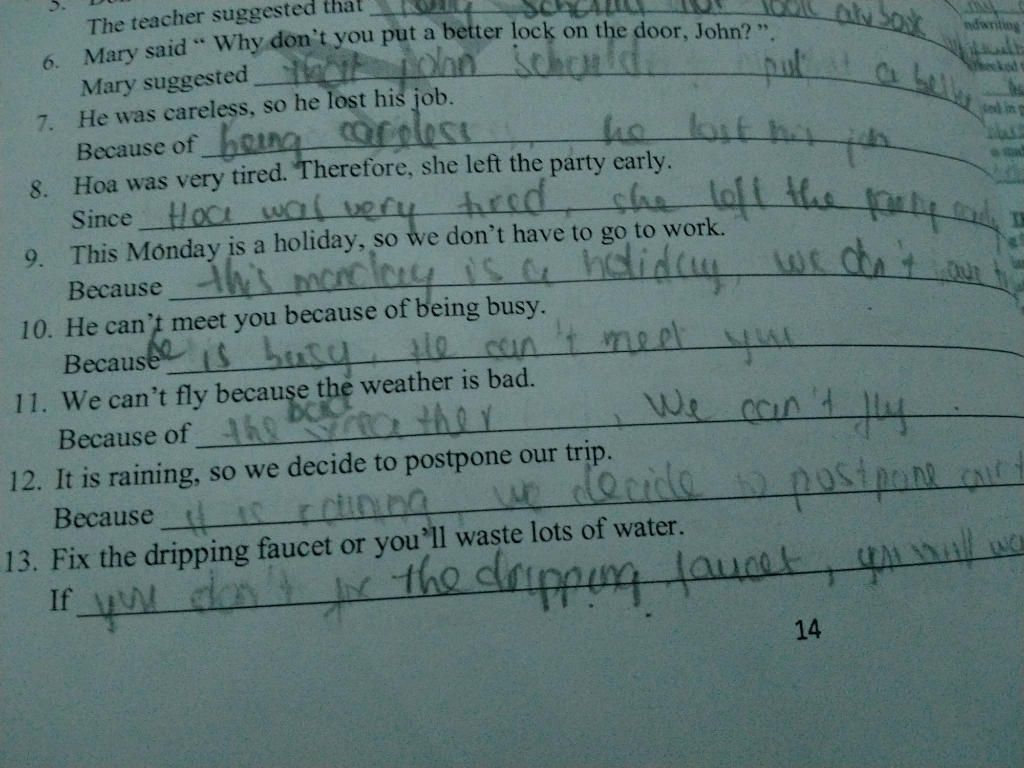 5.
The teacher suggested that
6. Mary said “ Why don’t you put a better lock on the door, John? ”.
Mary suggested that john schould put a
7. He was careless, so he lost his job.
Because of being careless, he lost his job
8. Hoa was very tired. Therefore, she left the party early.
Since Hoa was very tired, she left the party early
9. This Monday is a holiday, so we don’t have to go to work.
Because this monday is a holiday, we don't
10. He can’t meet you because of being busy.
Because he is busy, He can't meet you
11. We can’t fly because the weather is bad.
Because of the bad weather, We can't fly.
12. It is raining, so we decide to postpone our trip.
Because it is raining, we decide to postpone our
13. Fix the dripping faucet or you’ll waste lots of water.
If you don't fix the dripping faucet, you will
14